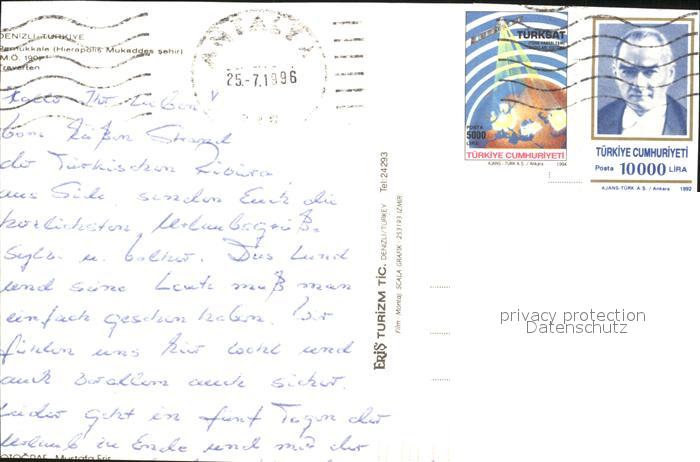 DENİZLİ-TÜRKİYE
Pamukkale (Hierapolis Mukaddes şehir)
(M.Ö. 190)
Traverten
ANTALYA
25.-7.1996
TÜRKSAT
POSTA
5000
LİRA
TÜRKİYE CUMHURİYETİ
AJANS-TÜRK A.Ş./Ankara 1994
TÜRKİYE CUMHURİYETİ
Posta 10000 LİRA
AJANS-TÜRK A.Ş./Ankara 1992
Hallo Ihr Lieben
vom heißen Strand
der Türkischen Riviera
aus Side, senden Euch die
herzlichsten Urlaubsgrüße
u.
Das Land
und seine Leute muß man
einfach gesehen haben. Wir
fühlen uns hier wohl und
auch vor allem auch sicher.
Leider geht in fünf Tagen der
Urlaub zu Ende und mit der
FOTOĞRAF: Mustafa Eriş
ERİŞ TURİZM TİC. DENİZLİ/TURKEY Tel: 24293
Film - Montaj: SCALA GRAFİK - 253193 İZMİR
privacy protection
Datenschutz